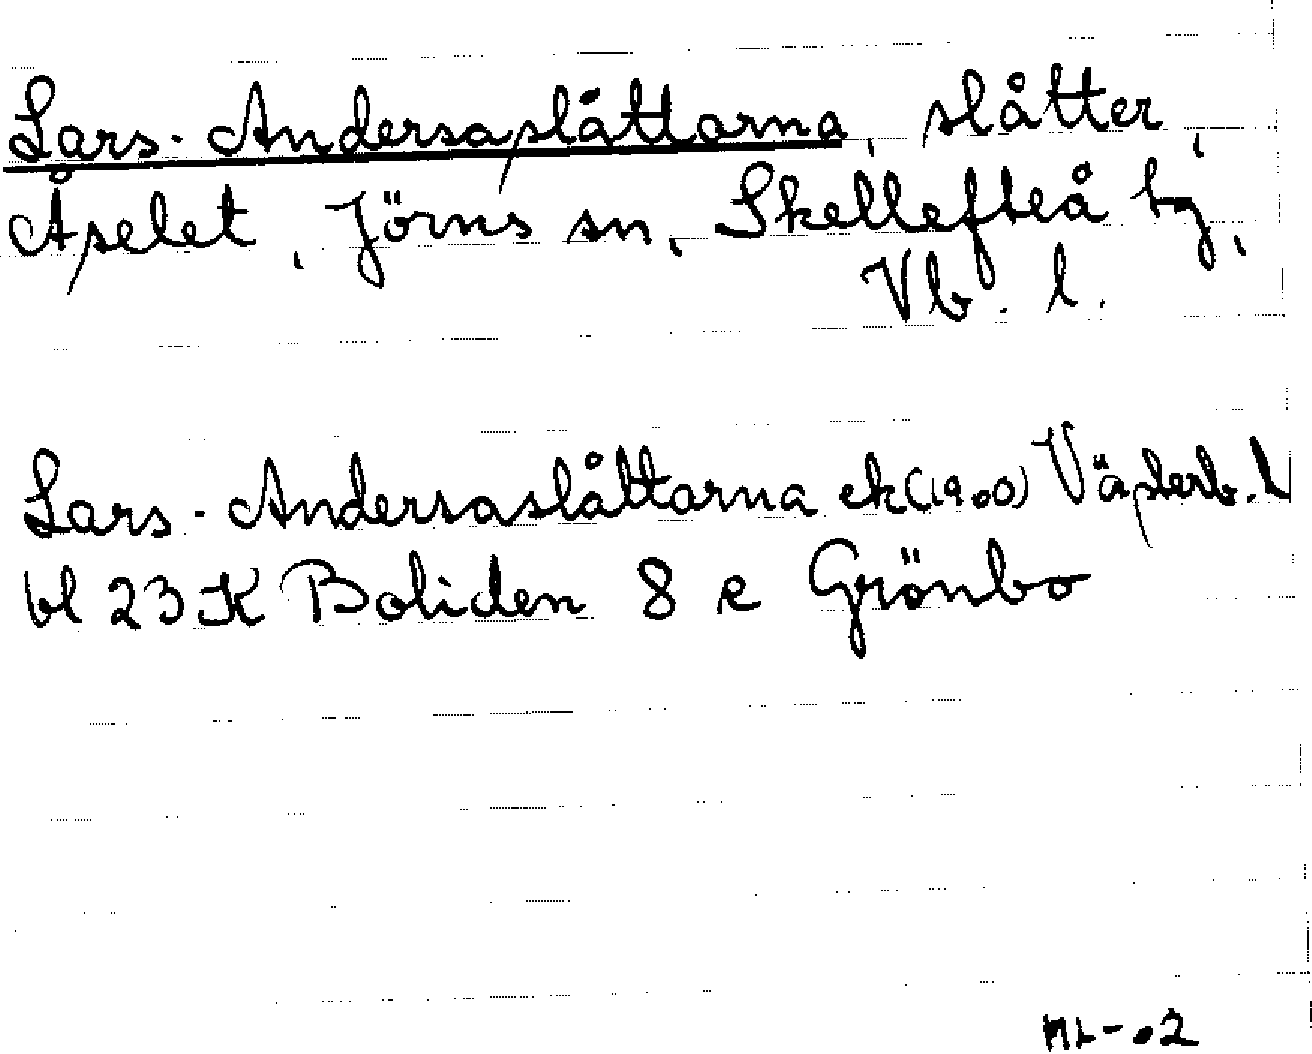 Lars-Andersaslåttarna, slåtter,
Åselet, Jörns sn, Skellefteå tg,
Vb. l.
Lars-Andersaslåttarna ek(1900) Västerb. l
bl 23K Boliden 8 e Grönbo